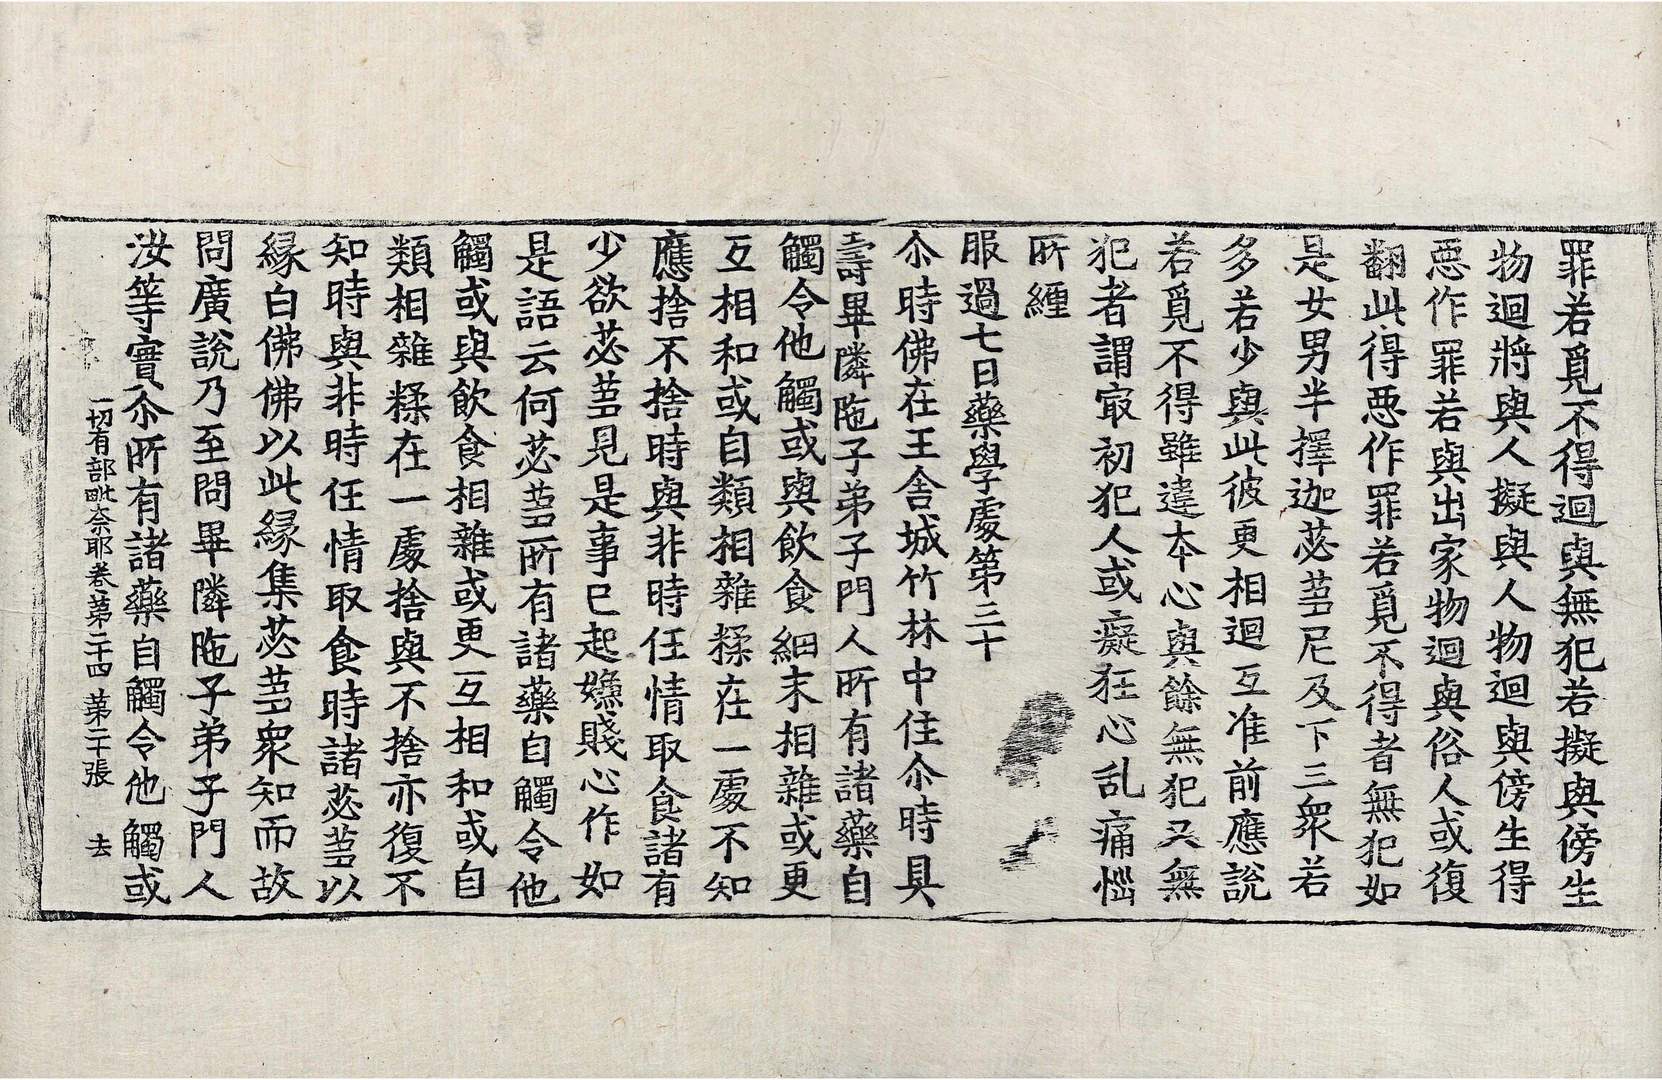 罪若覓不得迴與無犯若擬與傍生
物迴將與人擬與人物迴與傍生得
惡作罪若與出家物迴與俗人或復
翻此得惡作罪若覓不得者無犯如
是女男半擇迦苾芻尼及下三衆若
多若少與此彼更相迴互准前應說
若覓不得雖違本心與餘無犯又無
犯者謂㝡初犯人或癡狂心乱痛惱
所纏
服過七日藥學處第三十
尒時佛在王舍城竹林中住尒時具
壽畢隣陁子弟子門人所有諸藥自
觸令他觸或與飲食細末相雜或更
互相和或自類相雜糅在一處不知
應捨不捨時與非時任情取食諸有
少欲苾芻見是事已起嫌賤心作如
是語云何苾芻所有諸藥自觸令他
觸或與飲食相雜或更互相和或自
類相雜糅在一處捨與不捨亦復不
知時與非時任情取食時諸苾芻以
緣白佛佛以此緣集苾芻衆知而故
問廣說乃至問畢隣陁子弟子門人
汝等實尒所有諸藥自觸令他觸或
一切有部毗奈耶卷第二十四 第二十張 去